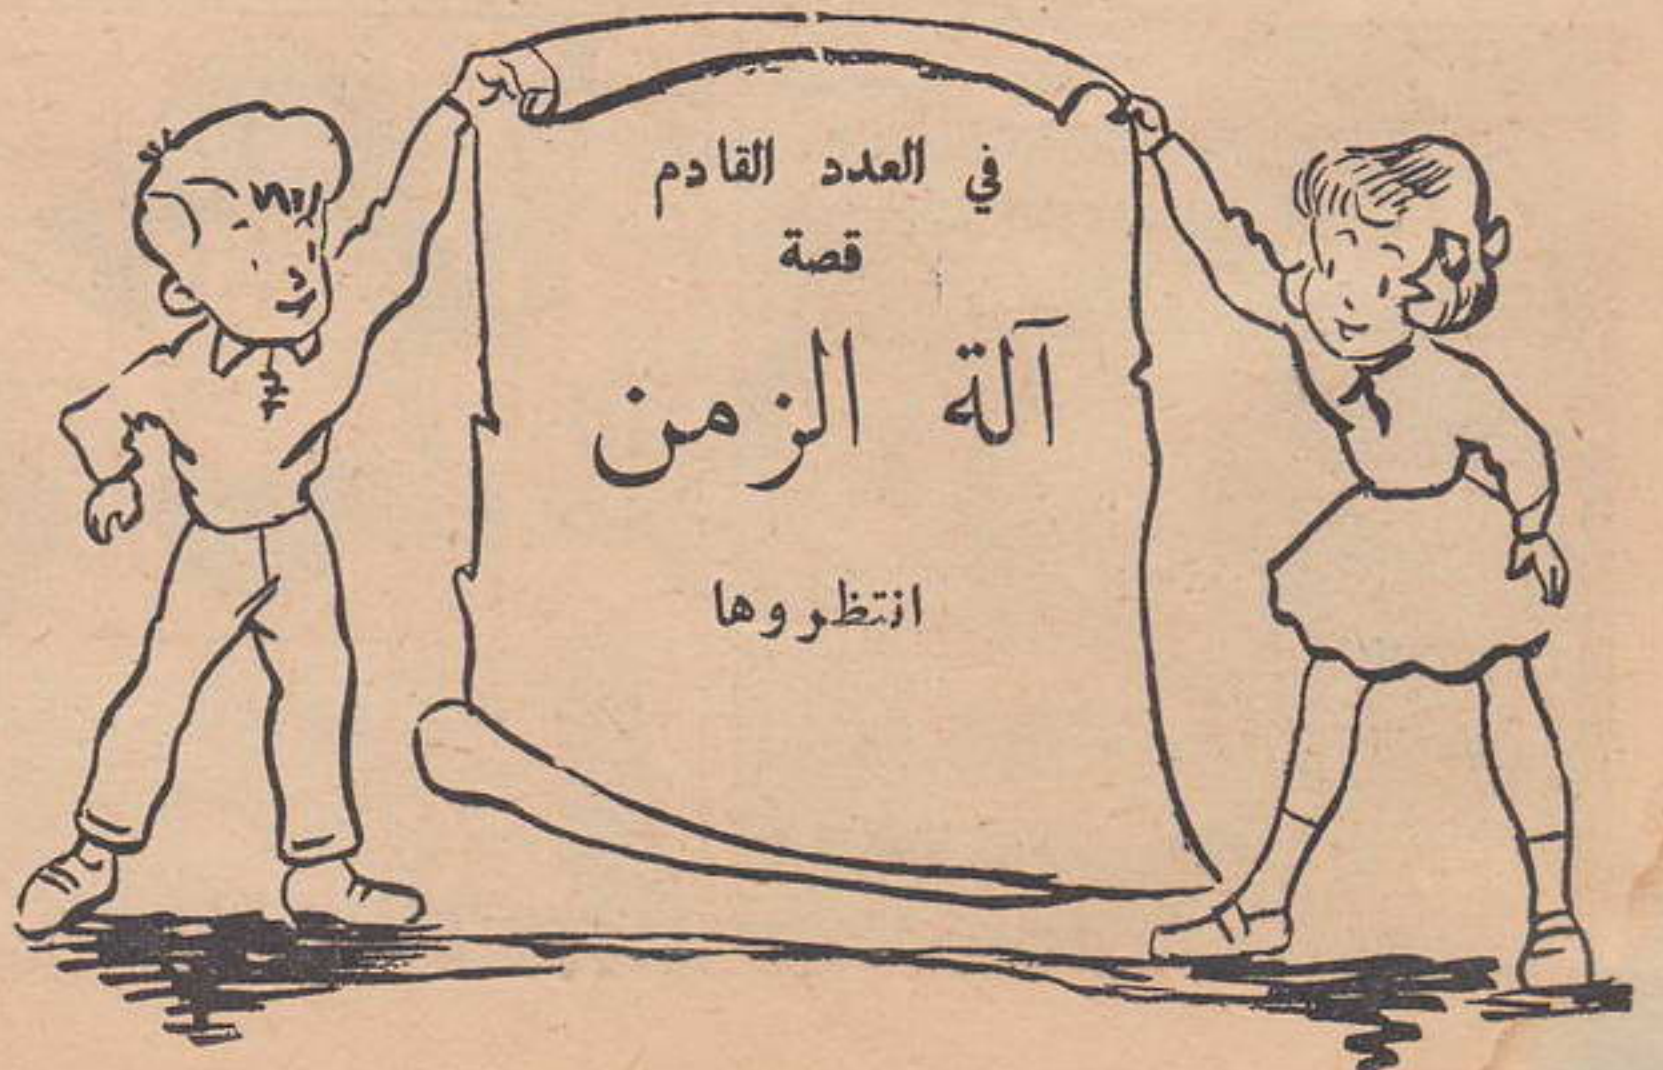 في العدد القادم
قصة
آلة الزمن
انتظروها